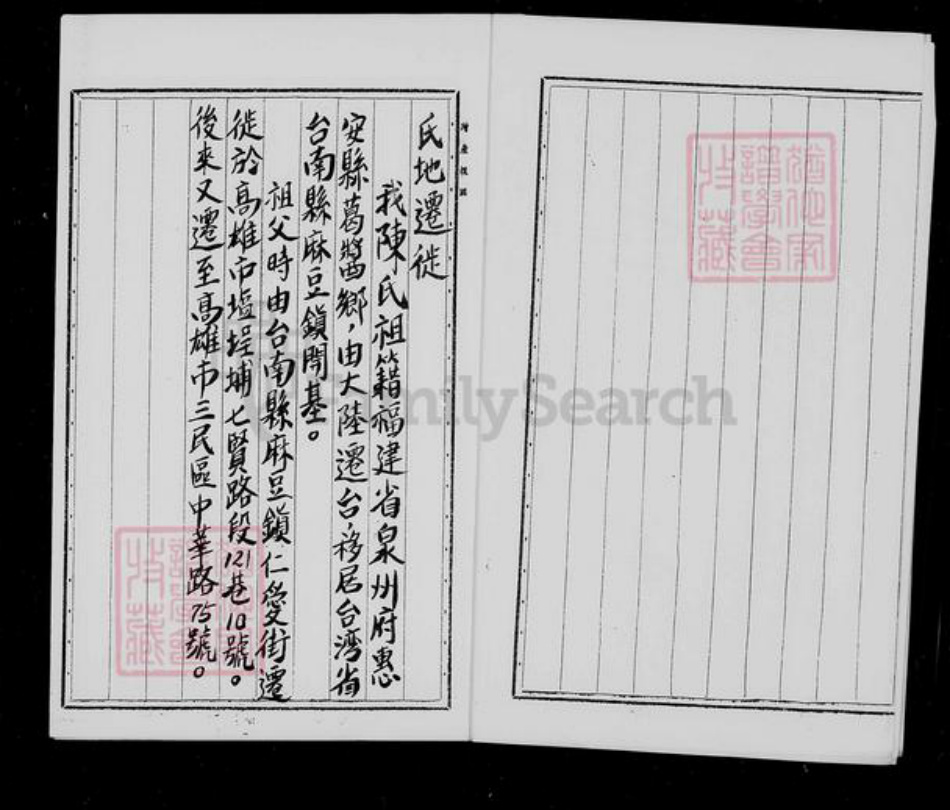 氏地遷徙
我陳氏祖籍福建省泉州府惠
安縣葛醬鄉,由大陸遷台,移居台湾省
台南縣麻豆鎮開基。
祖父時由台南縣麻豆鎮仁愛街遷
徙於高雄市塩埕埔七賢路段121巷10號。
後來又遷至高雄市三民區中華路75號。
FamilySearch